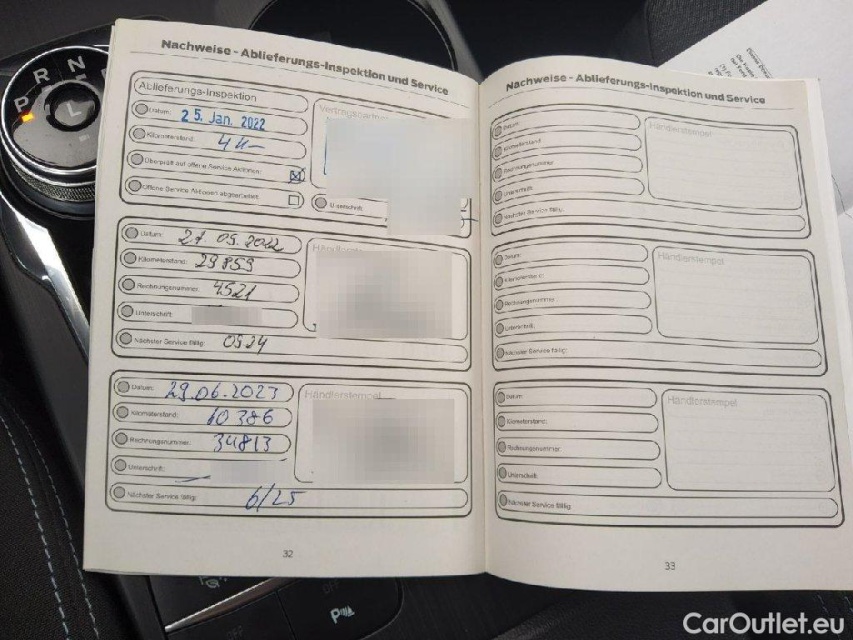 Nachweise - Ablieferungs-Inspektion und Service
Ablieferungs-Inspektion
Datum: 25. Jan. 2022
Kilometerstand:
Überprüft auf offene Service Aktionen:
Offene Service Aktionen abgearbeitet:
Unterschrift:
Datum: 27.05.2022
Kilometerstand: 29859
Rechnungsnummer: 4521
Unterschrift:
Nächster Service fällig: 0524
Händlerstempel
Datum: 29.06.2023
Kilometerstand: 60386
Rechnungsnummer: 34813
Unterschrift:
Nächster Service fällig: 6/25
32
Nachweise - Ablieferungs-Inspektion und Service
Datum:
Kilometerstand:
Rechnungsnummer:
Unterschrift:
Nächster Service fällig:
Händlerstempel
Datum:
Kilometerstand:
Rechnungsnummer:
Unterschrift:
Nächster Service fällig:
Händlerstempel
Datum:
Kilometerstand:
Rechnungsnummer:
Unterschrift:
Nächster Service fällig:
Händlerstempel
33
P R N D
L
CarOutlet.eu